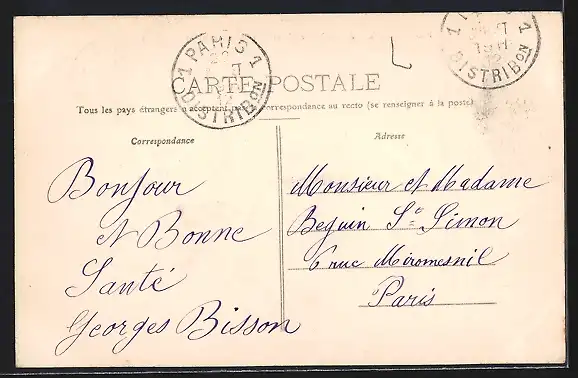 PARIS 1
1 DISTRIBON
DISTRIBON
CARTE POSTALE
Tous les pays étrangers n'acceptent pas la correspondance au recto (se renseigner à la poste)
Correspondance
Bonjour
et Bonne
Santé
Georges Bisson
Adresse
Monsieur et Madame
Beguin St Simon
6 rue Miromesnil
Paris